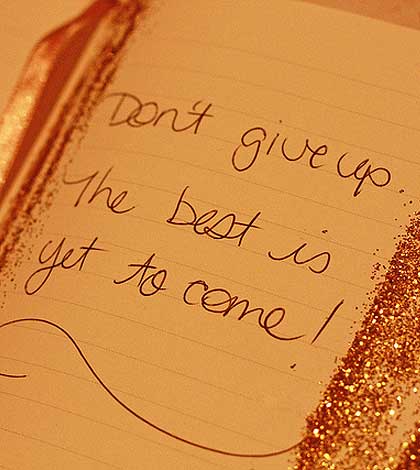 Don't give up..
The best is
yet to come!